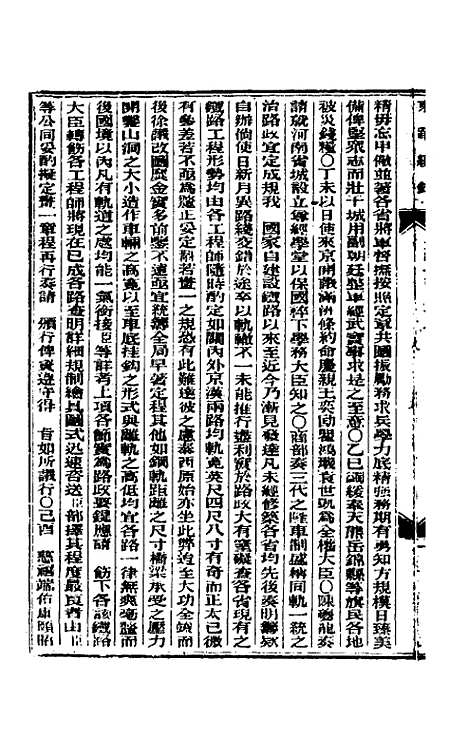 精毋忘申儆並著各省將軍督撫按照定章共圖振勵務求兵學力底精強務期有勇知方規模日臻美
備俾堅眾志而壯干城用副朝廷整軍經武實事求是之至意〇乙巳緩奉天熊岳錦縣等旗民各地
被災錢糧〇丁未以日使來京開議滿洲條約命慶親王奕劻瞿鴻禨袁世凱為全權大臣〇陳夔龍奏
請就河南省城設立尊經學堂以保國粹下學務大臣知之〇商部奏三代之隆車制盛稱同軌一統之
治路政宜定成規我 國家自建設鐵路以來至近今乃漸見發達凡未經修築各省均先後奏明籌欵
自辦倘使日新月異路綫交錯於途卒以軌轍不一未能推行盡利實於路政大有窒礙查各省現有之
鐵路工程形勢均由各工程師隨時酌定如關內外京漢兩路均軌寬英尺四尺八寸有奇而正太已微
有參差若不亟為釐正妥定劃若畫一之規恐有此難達彼之慮泰西原始亦坐此弊迨至大功全竣而
後徐議改圖縻金實多前鑒不遠亟宜統籌全局早著定程其他如鋼軌距離之尺寸橋梁承受之壓力
開鑿山洞之大小造作車輛之高寬以至車底挂鈎之形式與離軌之高低均宜各路一律無爽毫釐而
後國境以內凡有軌道之處均能一氣銜接臣等詳考上項各節實為路政要鍵應請 飭下各該鐵路
大臣轉飭各工程師將現在已成各路查明詳細規制繪具圖式迅速咨送臣部擇其程度最良者由臣
等公同妥酌擬定齊一章程再行奏請 頒行俾資遵守得 旨如所議行〇己酉